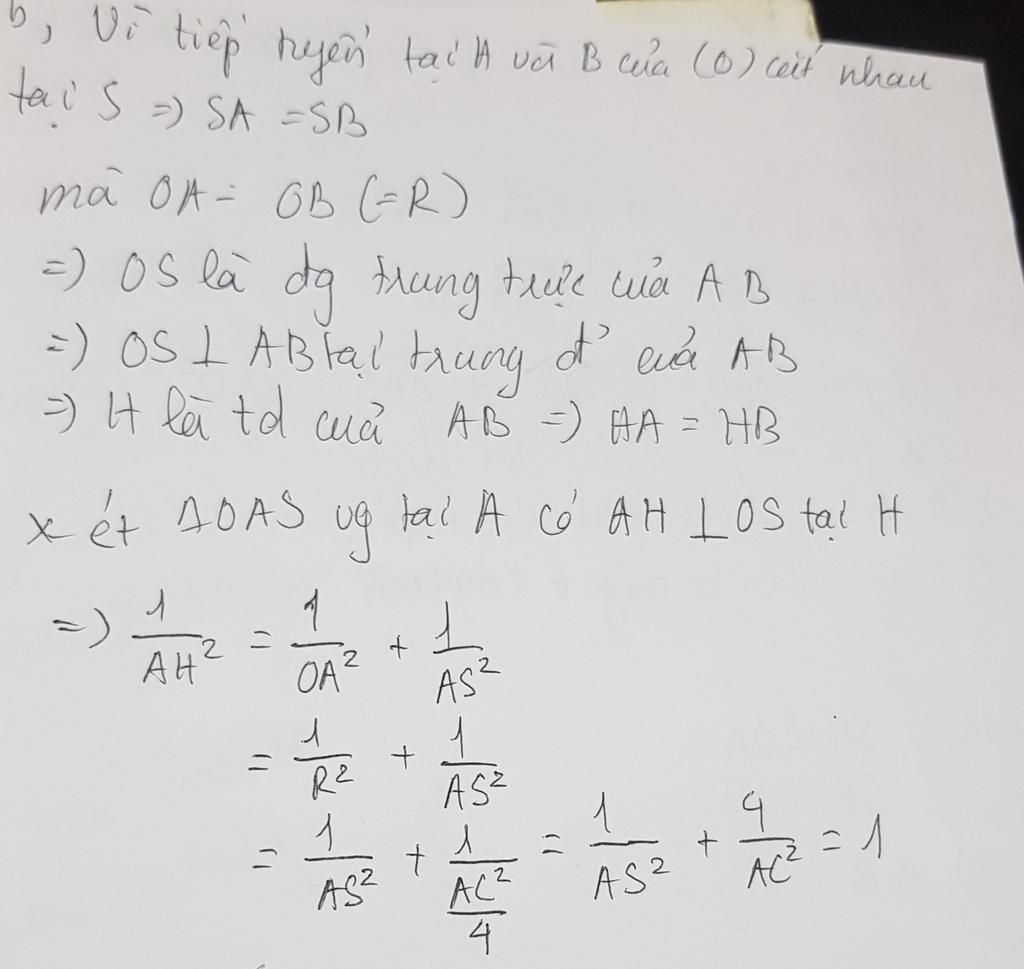 b, Vì tiếp tuyến tại A và B của (O) cắt nhau
tại S => SA = SB
mà OA = OB (=R)
=> OS là đg trung trực của AB
=> OS ⊥ AB tại trung đ' của AB
=> H là td của AB => HA = HB
xét ΔOAS vg tại A có AH ⊥ OS tại H
=> 1/AH² = 1/OA² + 1/AS²
= 1/R² + 1/AS²
= 1/AS² + 1/(AC²/4) = 1/AS² + 4/AC² = 1